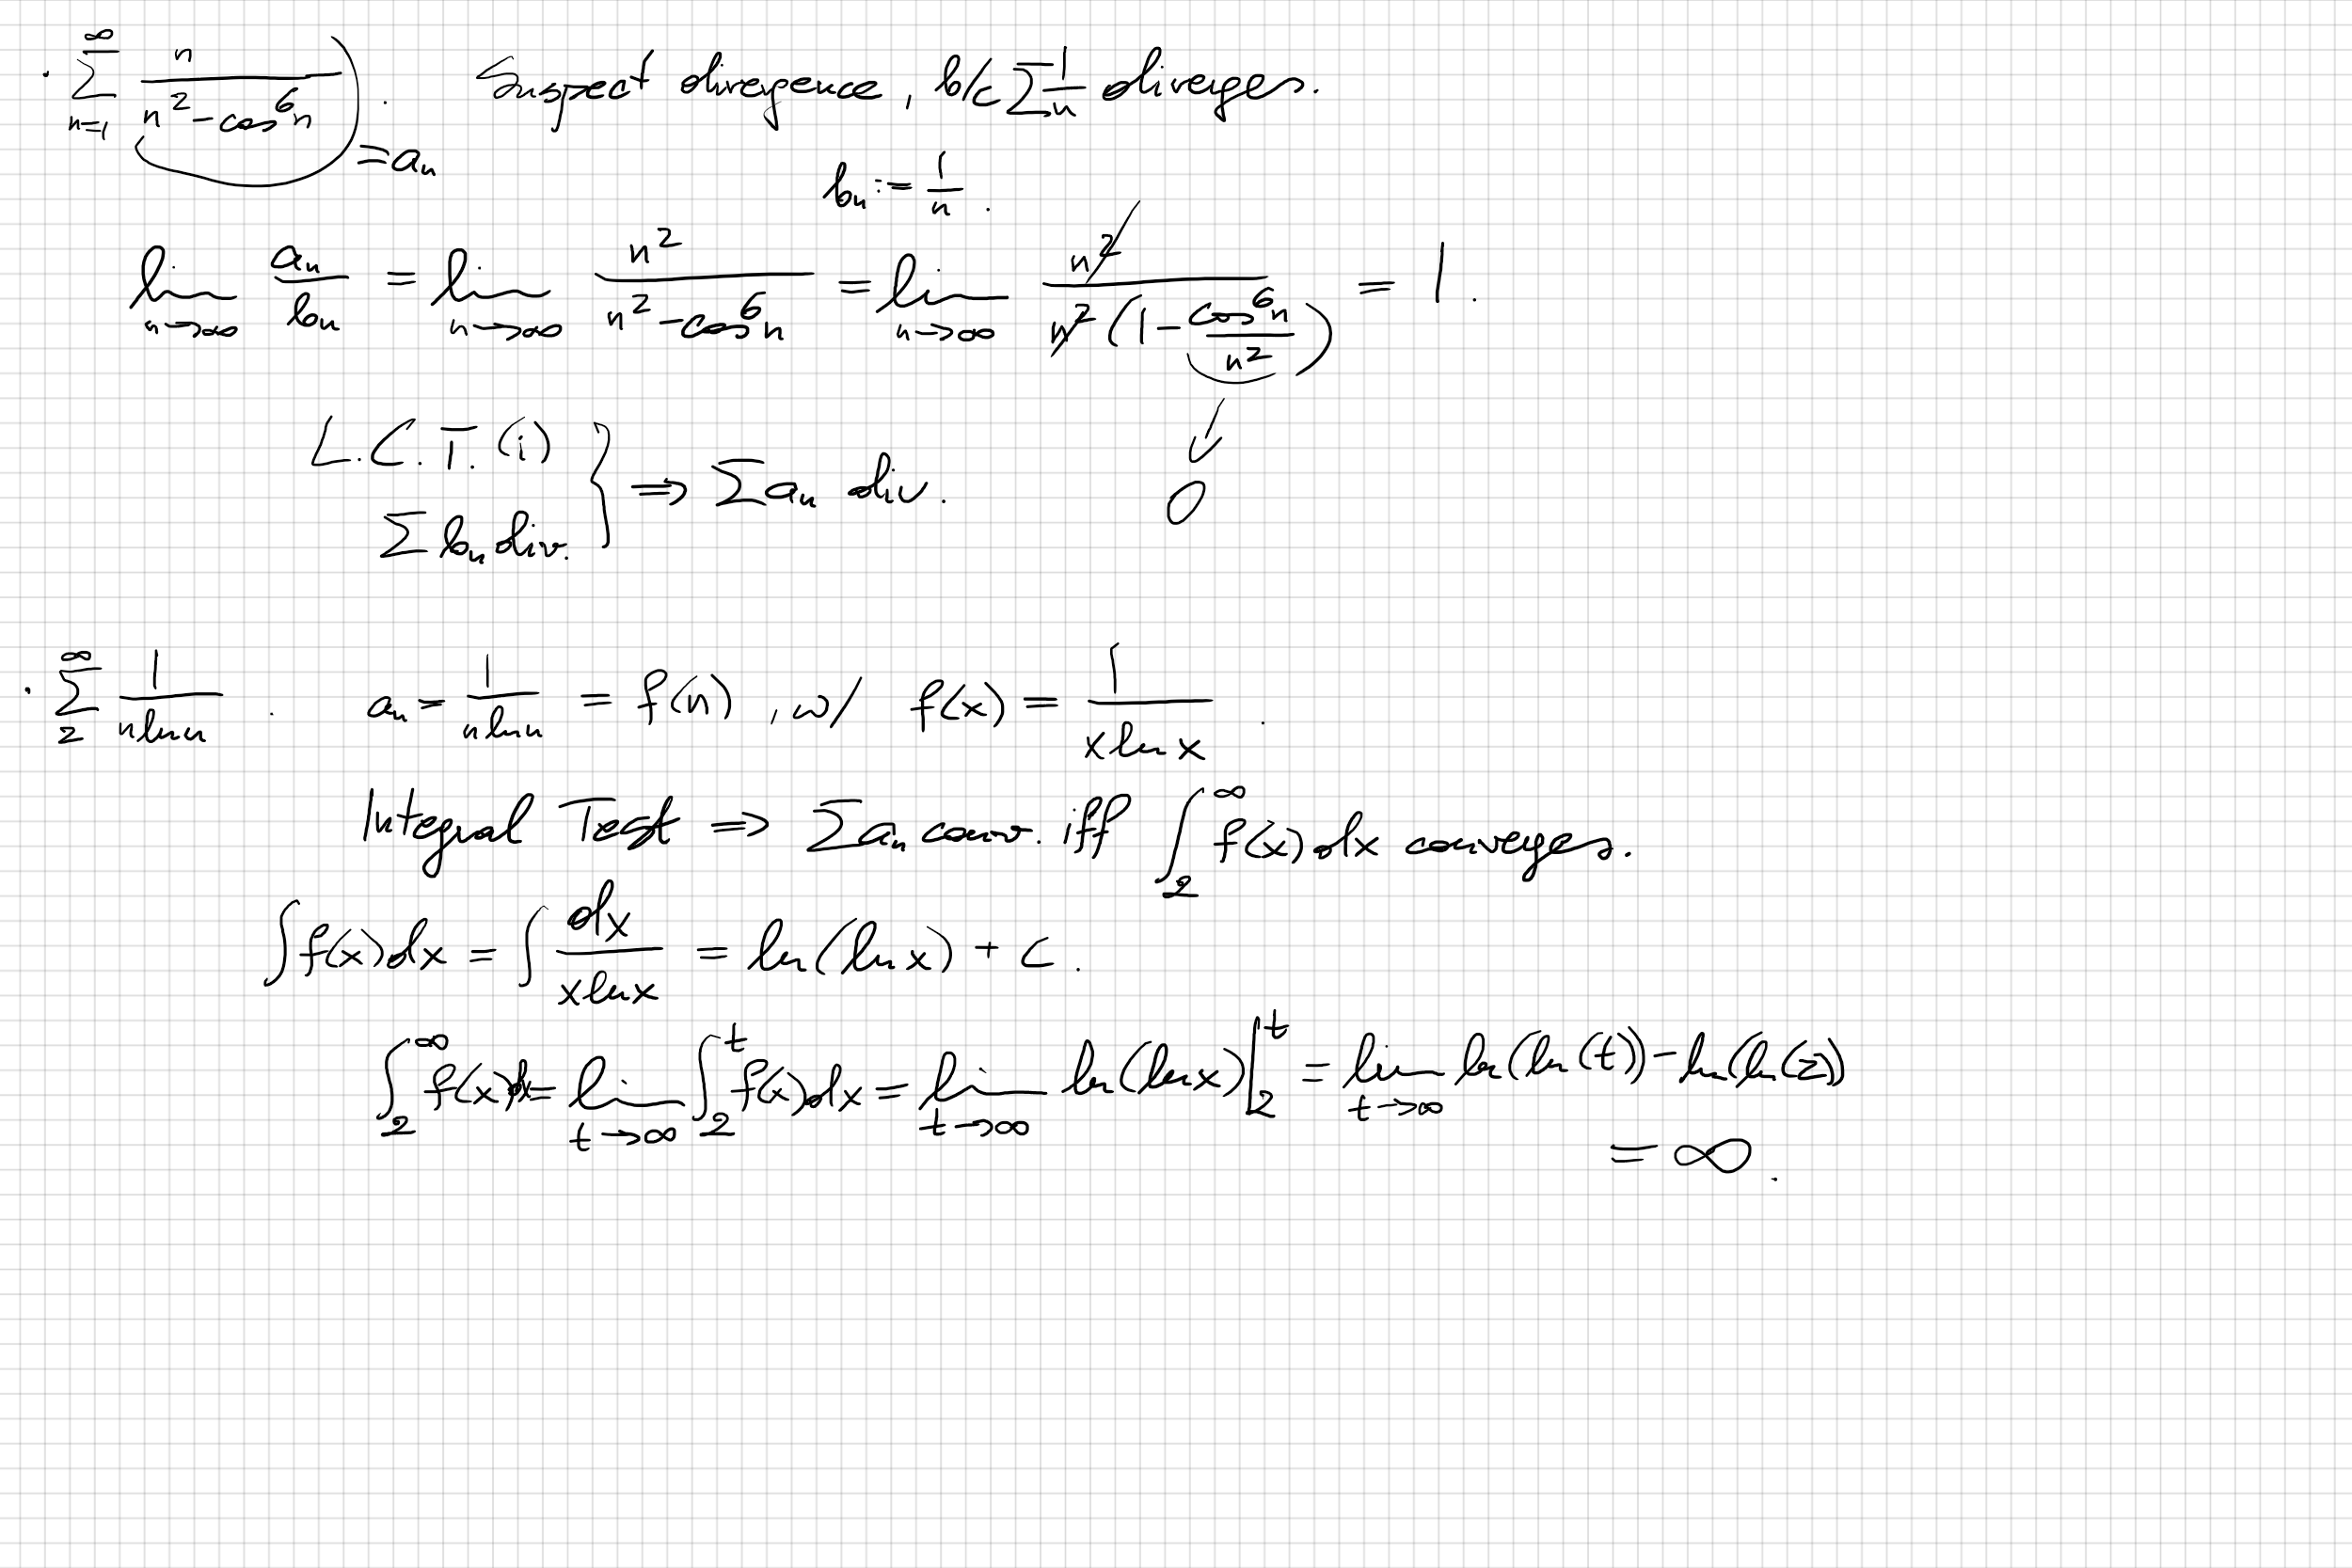 · $\sum_{n=1}^{\infty} \frac{n}{n^2 - \cos^6 n}$ $= a_n$. Suspect divergence, b/c $\sum \frac{1}{n}$ diverges.
$b_n := \frac{1}{n}$.
$\lim_{n \to \infty} \frac{a_n}{b_n} = \lim_{n \to \infty} \frac{n^2}{n^2 - \cos^6 n} = \lim_{n \to \infty} \frac{n^2}{n^2 (1 - \frac{\cos^6 n}{n^2})} = 1.$
↓
0
L.C.T. (i)
$\sum b_n$ div. } $\Rightarrow \sum a_n$ div.
· $\sum_{2}^{\infty} \frac{1}{n \ln n}$. $a_n = \frac{1}{n \ln n} = f(n)$, w/ $f(x) = \frac{1}{x \ln x}$.
Integral Test $\Rightarrow \sum a_n$ conv. iff $\int_2^{\infty} f(x) dx$ converges.
$\int f(x) dx = \int \frac{dx}{x \ln x} = \ln(\ln x) + C.$
$\int_2^{\infty} f(x) dx = \lim_{t \to \infty} \int_2^t f(x) dx = \lim_{t \to \infty} \ln(\ln x) \Big|_2^t = \lim_{t \to \infty} \ln(\ln(t)) - \ln(\ln(2))$
$= \infty.$